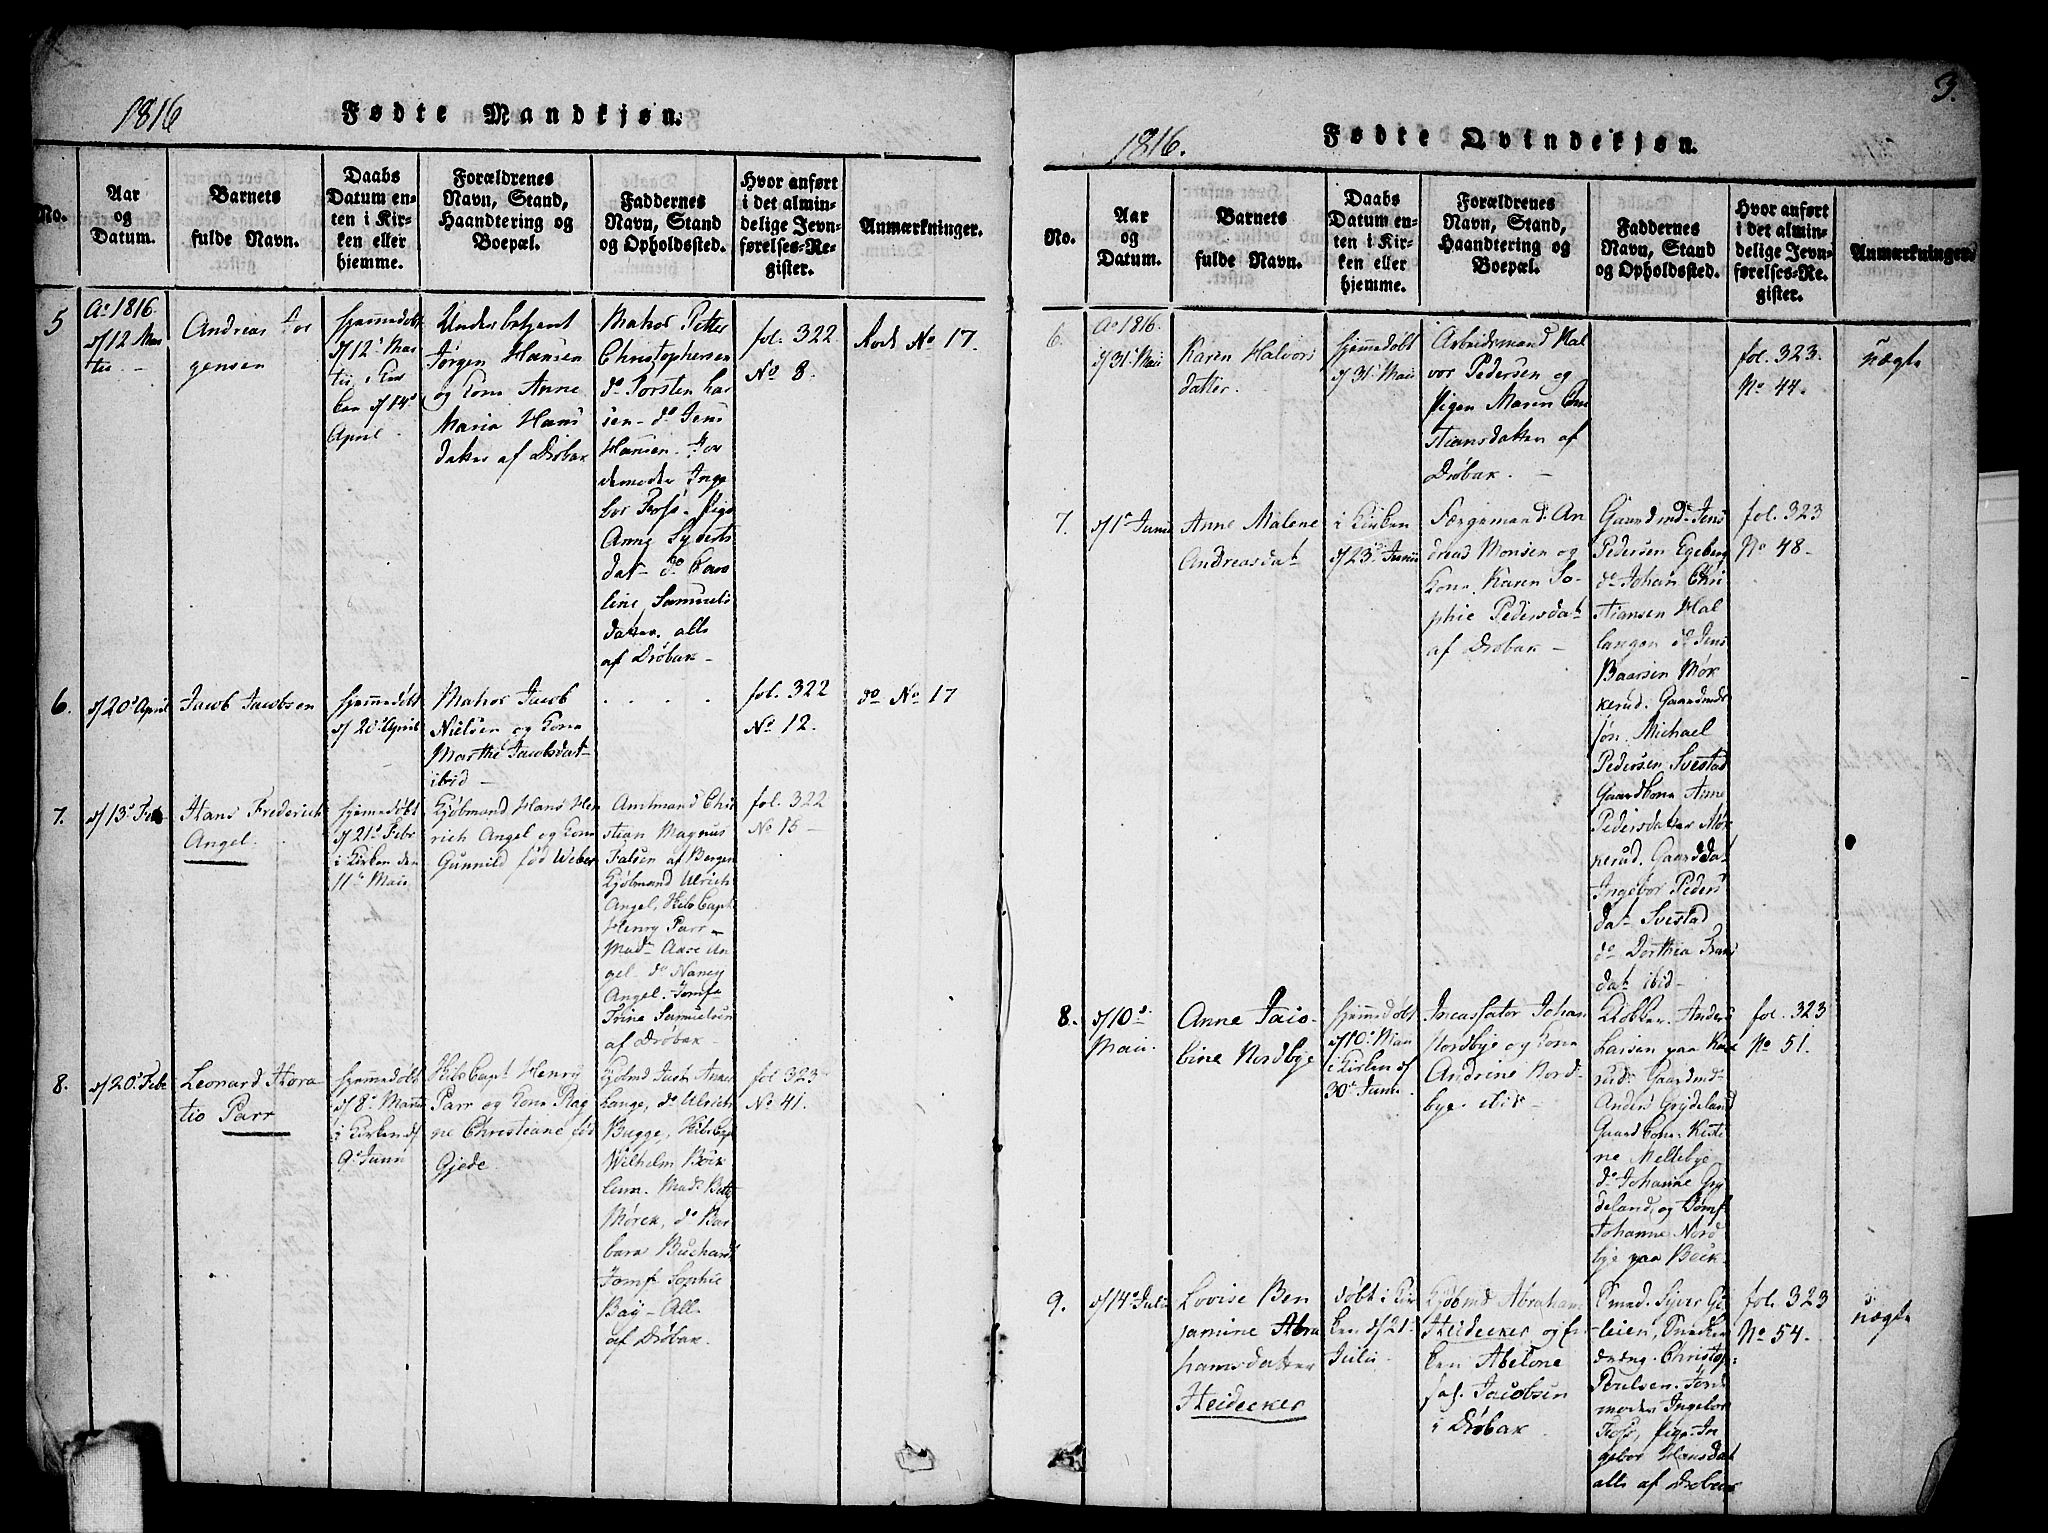 1816
Fødte Mandkjøn.
No.
Aar
og
Datum.
Barnets
fulde Navn.
Daabs
Datum en-
ten i Kir-
ken eller
hjemme.
Forældrenes
Navn, Stand,
Haandtering og
Boepæl.
Faddernes
Navn, Stand
og Opholdssted.
Hvor anført
i det almin-
delige Jevn-
førelses-Re-
gister.
Anmærkninger.
5
Ao 1816.
d/12 Mar
tii
Andreas Jør
gensen
hjemmedøbt
d/12t Mar
tii, i Kir
ken d/14d
April
Underbetjent
Jørgen Hansen
og Kone Anne
Maria Hans
datter af Drøbak
Matros Petter
Christophersen
do Torsten Lar
sen - do Jens
Hansen. Jor
demoder Inge
bor Foss - Pige
Anne Syverts
dat - do Karo
line Samuels
datter. alle
af Drøbak -
fol. 322
No 8.
Rode No 17.
6.
d/20d April
Jacob Jacobsen
hjemmedøbt
d/20d April
Matros Jacob
Nielsen og Kone
Marthe Jacobsdat-
ibid -
fol. 322
No 12.
do No 17
7.
d/13d Feb
Hans Frederich
Angel.
hjemmedøbt
d/21d Febr
i Kirken den
11te Maii
Kjøbmand Hans Hen
rich Angel og Kone
Gunnild fød Weber
Amtmand Chri
stian Magnus
Falsen af Bergen
Kjøbmand Ulrich
Angel, Skibs Capt
Henry Parr -
Mad- Aase An
gel - do Nancy
Angel. Jomf-
Trine Samuelsen
af Drøbak -
fol. 322
No 15 -
8.
d/20d Febr
Leonard Hora
tio Parr
hjemmedøbt
d/8d Martii
i Kirken d/
9d Junii
Skibs Capt Henry
Parr og Kone Rag
ne Christiane fød
Gjøde.
Kjøbmd Just Anker
Lange, do Ulrich
Bugge, Skibs Capt
Wilhelm Bock
Mad- Betty
Mørck, do Bar
bara Buchard
Jomf- Sophie
Bay - Alle
af Drøbak.
fol 323
No 41.
3.
1816.
Fødte Qvindekjøn.
No.
Aar
og
Datum.
Barnets
fulde Navn.
Daabs
Datum en-
ten i Kir-
ken eller
hjemme.
Forældrenes
Navn, Stand,
Haandtering og
Boepæl.
Faddernes
Navn, Stand
og Opholdssted.
Hvor anført
i det almin-
delige Jevn-
førelses-Re-
gister.
Anmærkninger.
6.
Ao 1816.
d/31t Maii
Karen Halvors
datter.
hjemmedøbt
d/31t Maii
Arbeidsmand Hal
vor Pedersen og
Pigen Maren Chri
stiansdatter af
Drøbak. -
fol. 323.
No 44.
uægte
7.
d/1d Junii
Anne Malene
Andreasdat
i Kirken
d/23d Junii
Færgemand An
dreas Monsen og
Kone Karen So-
phie Pedersdat
af Drøbak -
Gaardmd Jens
Pedersen Egeberg
do Johan Chri
stiansen Hal
langen do Jens
Baarsen Mør
kerud. Gaardmds
søn. Michael
Pedersen Svestad
Gaardkone Anne
Pedersdatter Mør
kerud. Gaardsdat
Ingebor Peders
dat- Svestad
do Dorthea Frans
dat- ibid -
fol. 323
No 48-
8.
d/10d
Maii.
Anne Jaco-
bine Nordbye
hjemmedøbt
d/10d Maii
i Kirken d/
30d Junii
Incassator Johan
Nordbye og Kone
Andrine Nord-
bye. ibid -
Klokker. Anders
Larsen paa
Gaardmd
Anders Grydeland
Gaardkone Kiste
ne Mellebye
do Johanne Gry
deland, og Jomf-
Johanne Nord
bye paa Beck-
fol. 323
No 51.
9.
d/14d Julii
Lovise Ben
jamine Abra
hamsdatter
Heidecker
døbt i Kir
ken d/21
Julii
Kjøbmd Abraham
Heidecker og En-
ken Abelone
sal. Jacobsen
i Drøbak
Smed. Syver Ga
leien, Snecker
dreng. Christop-
Poulsen. Jord
moder Ingebor
Foss, Pige In
gebor Hansdat
alle af Drøbak
fol. 323
No 54.
uægte